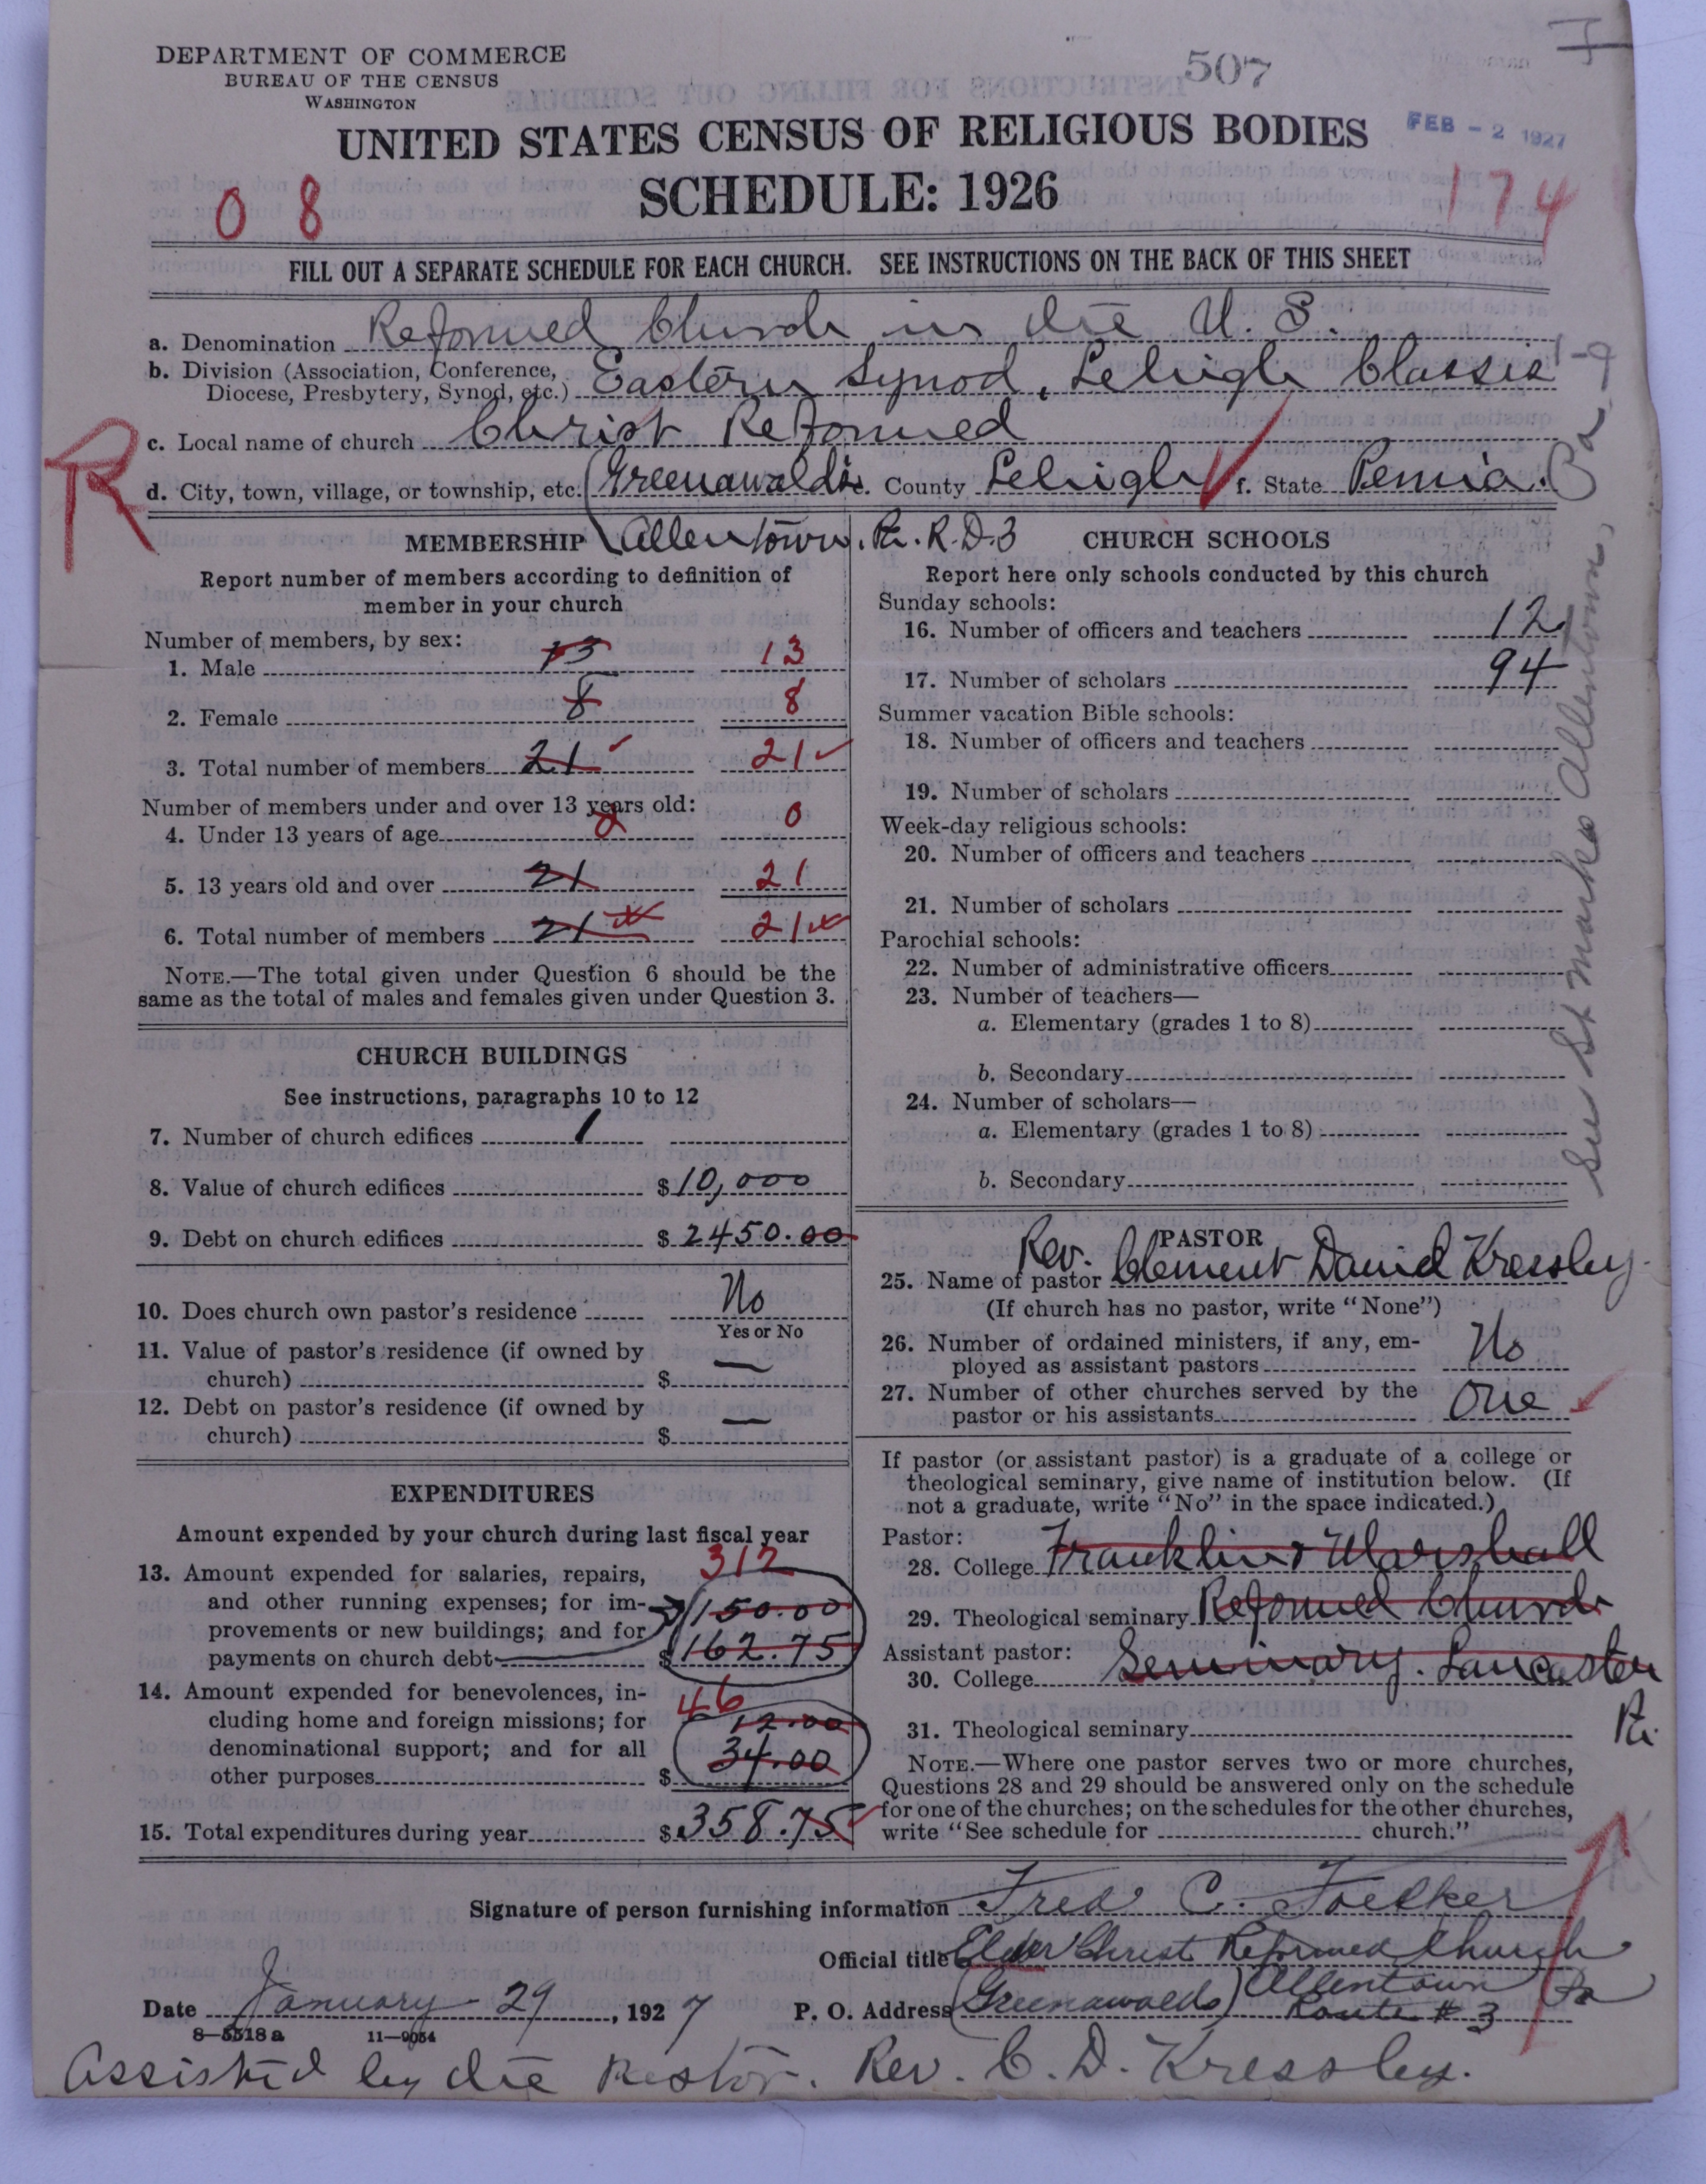 DEPARTMENT OF COMMERCE
BUREAU OF THE CENSUS
WASHINGTON
507
FEB - 2 1927
UNITED STATES CENSUS OF RELIGIOUS BODIES
SCHEDULE: 1926
0 8
174
FILL OUT A SEPARATE SCHEDULE FOR EACH CHURCH. SEE INSTRUCTIONS ON THE BACK OF THIS SHEET
a. Denomination Reformed Church in the U. S.
b. Division (Association, Conference,
Diocese, Presbytery, Synod, etc.) Eastern Synod, Lehigh Classis
c. Local name of church Christ Reformed
R
d. City, town, village, or township, etc. (Greenawalds e. County Lehigh f. State Penna.
Allentown, Pa. R.D.3
MEMBERSHIP
Report number of members according to definition of
member in your church
Number of members, by sex:
1. Male 13 13
2. Female 8 8
3. Total number of members 21 21
Number of members under and over 13 years old:
4. Under 13 years of age 0
5. 13 years old and over 21 21
6. Total number of members 21 21
NOTE.—The total given under Question 6 should be the
same as the total of males and females given under Question 3.
CHURCH BUILDINGS
See instructions, paragraphs 10 to 12
7. Number of church edifices 1
8. Value of church edifices $10,000
9. Debt on church edifices $2450.00
10. Does church own pastor's residence No
Yes or No
11. Value of pastor's residence (if owned by
church) $ —
12. Debt on pastor's residence (if owned by
church) $ —
EXPENDITURES
Amount expended by your church during last fiscal year
312
13. Amount expended for salaries, repairs,
and other running expenses; for im- 150.00
provements or new buildings; and for
payments on church debt $162.75
14. Amount expended for benevolences, in- 46
cluding home and foreign missions; for 12.00
denominational support; and for all 34.00
other purposes $
15. Total expenditures during year $358.75
CHURCH SCHOOLS
Report here only schools conducted by this church
Sunday schools:
16. Number of officers and teachers 12
17. Number of scholars 94
Summer vacation Bible schools:
18. Number of officers and teachers
19. Number of scholars
Week-day religious schools:
20. Number of officers and teachers
21. Number of scholars
Parochial schools:
22. Number of administrative officers
23. Number of teachers—
a. Elementary (grades 1 to 8)
b. Secondary
24. Number of scholars—
a. Elementary (grades 1 to 8)
b. Secondary
See St Marks Allentown, Pa
PASTOR
25. Name of pastor Rev. Clement David Kressley
(If church has no pastor, write "None")
26. Number of ordained ministers, if any, em-
ployed as assistant pastors No
27. Number of other churches served by the
pastor or his assistants One
If pastor (or assistant pastor) is a graduate of a college or
theological seminary, give name of institution below. (If
not a graduate, write "No" in the space indicated.)
Pastor:
28. College Franklin & Marshall
29. Theological seminary Reformed Church
Assistant pastor:
30. College Seminary. Lancaster
Pa.
31. Theological seminary
NOTE.—Where one pastor serves two or more churches,
Questions 28 and 29 should be answered only on the schedule
for one of the churches; on the schedules for the other churches,
write "See schedule for church."
Signature of person furnishing information Fred C. Foelker
Official title Elder Christ Reformed Church
Date January 29, 1927 P. O. Address (Greenawalds) Allentown Pa
Route # 3
8—5518 a 11—9054
Assisted by the Pastor. Rev. C. D. Kressley.